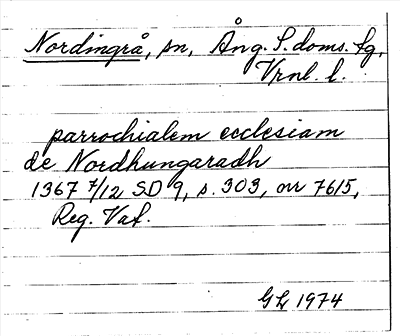 Nordingrå, sn, Ång. S. doms. fg,
Vrnl. l.
parrochialem ecclesiam
de Nordhungaradh
1367 7/12 SD 9, s. 303, nr 7615,
Reg. Vat.
GL 1974